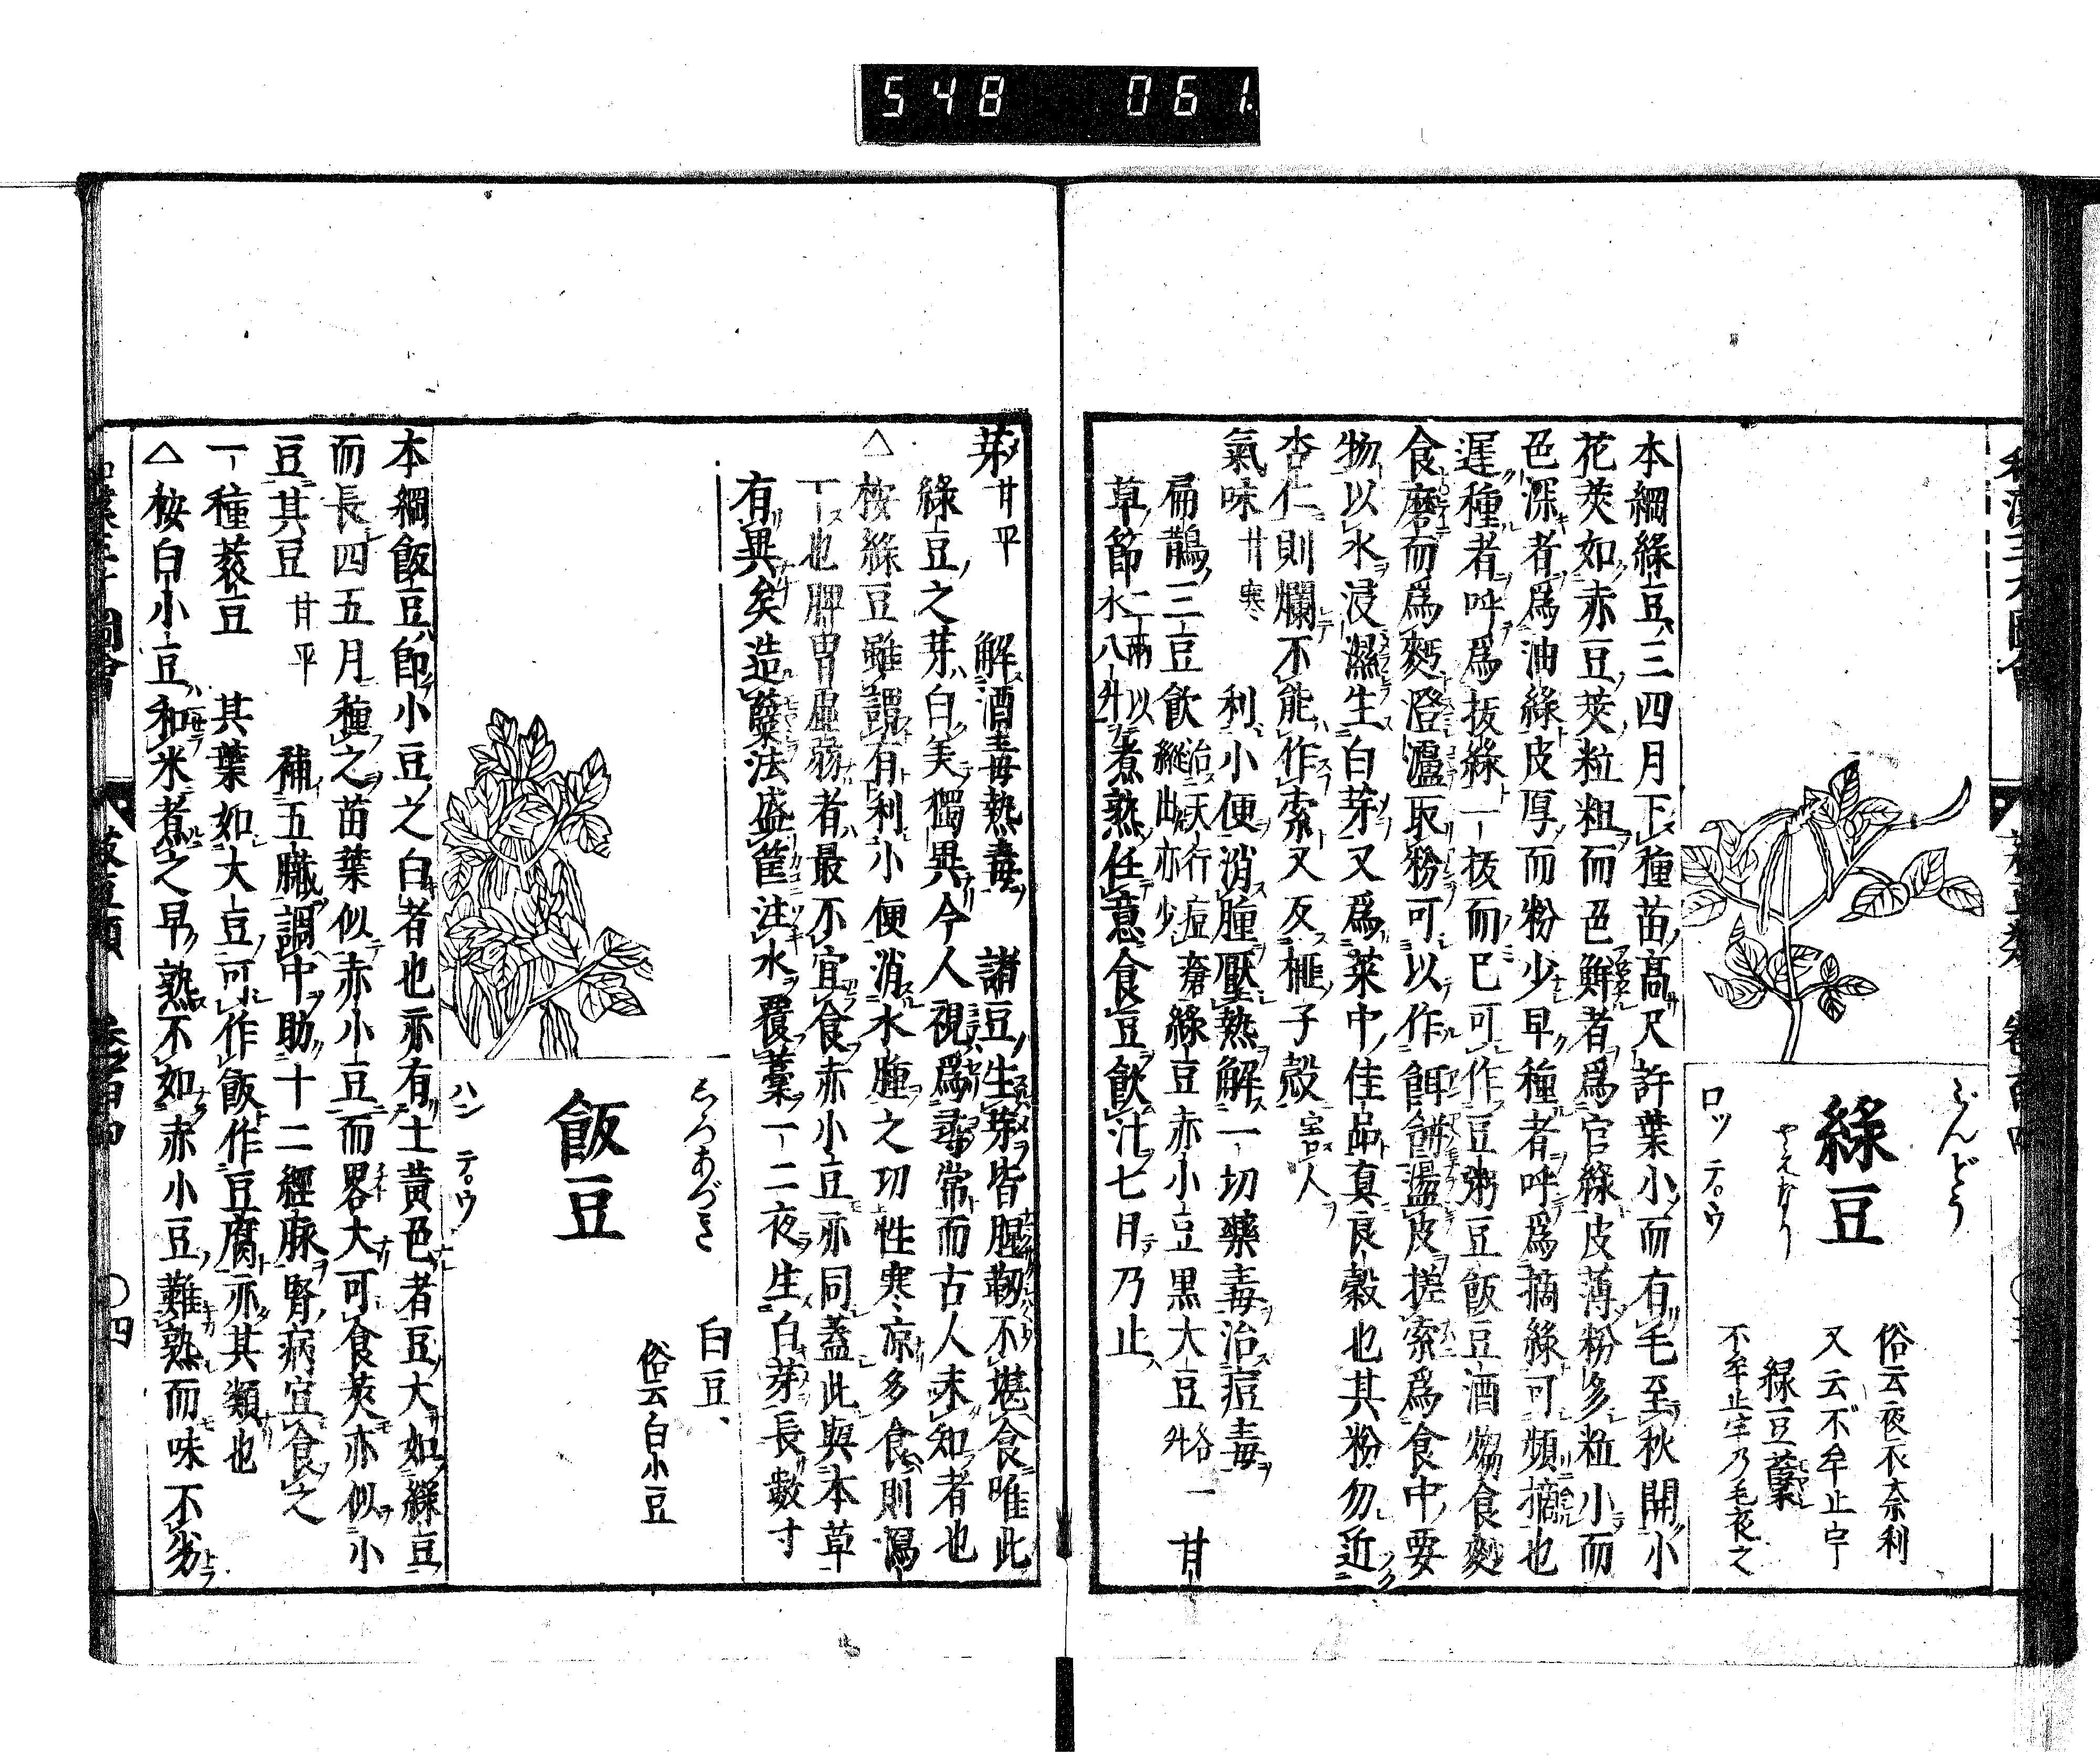 548 061
ぶんどう
緑豆
やへなり
ロッ テ゚ウ
俗云夜不奈利
又云不牟止宇
緑豆蘽
不牟止宇乃毛夜之
本綱緑豆三四月下種苗高尺許葉小而有毛至秋開小
花莢如赤豆莢粒粗而色鮮者爲官緑皮薄粉多粒小而
色深者爲油緑皮厚而粉少早種者呼爲摘緑可頻摘也
遲種者呼爲拔緑一拔而已可作豆粥豆飯豆酒物食麨
食磨而爲麪澄瀘取粉可以作餌餻盪皮搓索爲食中要
物以水浸濕生白芽又爲菜中佳品真良穀也其粉勿近
杏仁則爛不能作索又反榧子殻害人
氣味甘寒 利小便消腫壓熱解一切藥毒治痘毒
扁鵲三豆飲治天行痘瘡縦出亦少緑豆赤小豆黒大豆各一升甘
草節二兩以水八升煮熟任意食豆飲汁七日乃止
芽甘平 解酒毒熱毒 諸豆生芽皆腥韌不堪食唯此
緑豆之芽白美獨異今人視爲尋常而古人未知者也
△桉緑豆雖謂有利小便消水腫之功性寒凉多食則瀉
丁也脾胃虚弱者最不宜食赤小豆亦同蓋此與本草
有異矣造蘽法盛筐注水覆藁一二夜生白芽長數寸
しろあづき
飯豆
ハン テ゚ウ
白豆
俗云白小豆
本綱飯豆即小豆之白者也亦有土黄色者豆大如緑豆
而長四五月種之苗葉似赤小豆而畧大可食莢亦似小
豆其豆甘平 補五臓調中助十二經脉腎病宜食之
一種䅵豆 其葉如大豆可作飯作豆腐亦其類也
△桉白小豆和米煮之早熟不如赤小豆難熟而味不劣
飯豆類
〇四